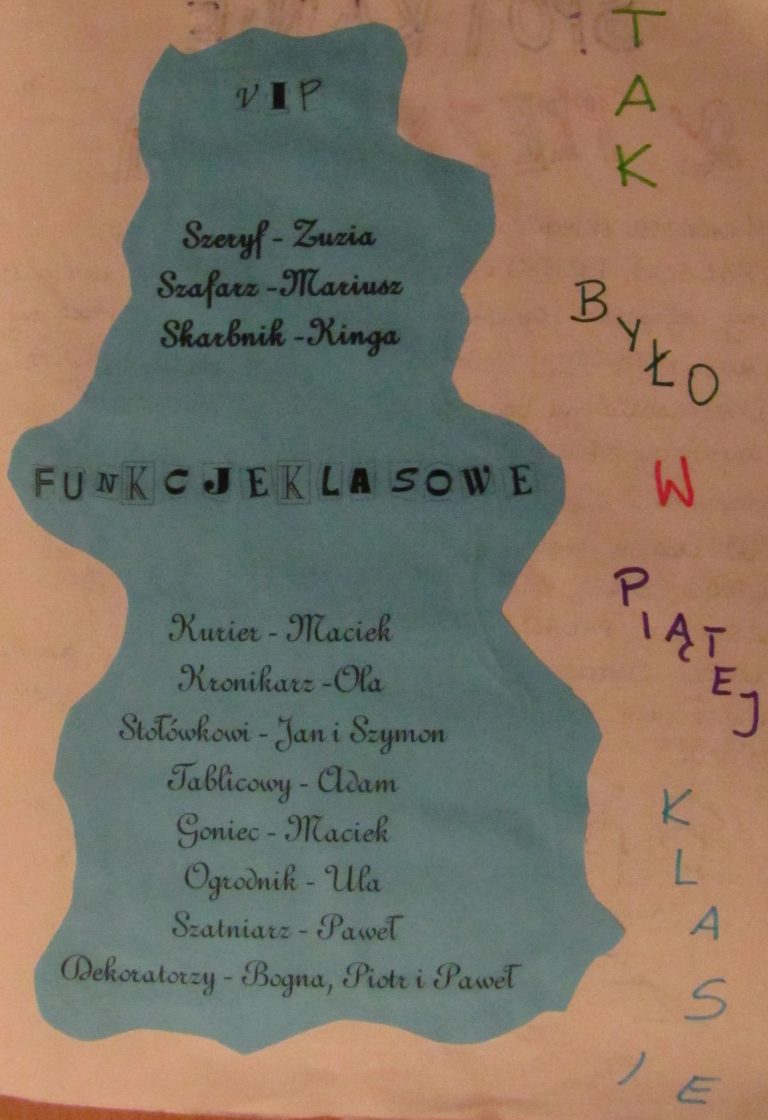 VIP
Szeryf - Zuzia
Szafarz -Mariusz
Skarbnik -Kinga
FUNKCJE KLASOWE
Kurier - Maciek
Kronikarz -Ola
Stołówkowi - Jan i Szymon
Tablicowy - Adam
Goniec - Maciek
Ogrodnik - Ula
Szatniarz - Paweł
Dekoratorzy - Bogna, Piotr i Paweł
TAK
BYŁO
W
PIĄTEJ
KLASIE